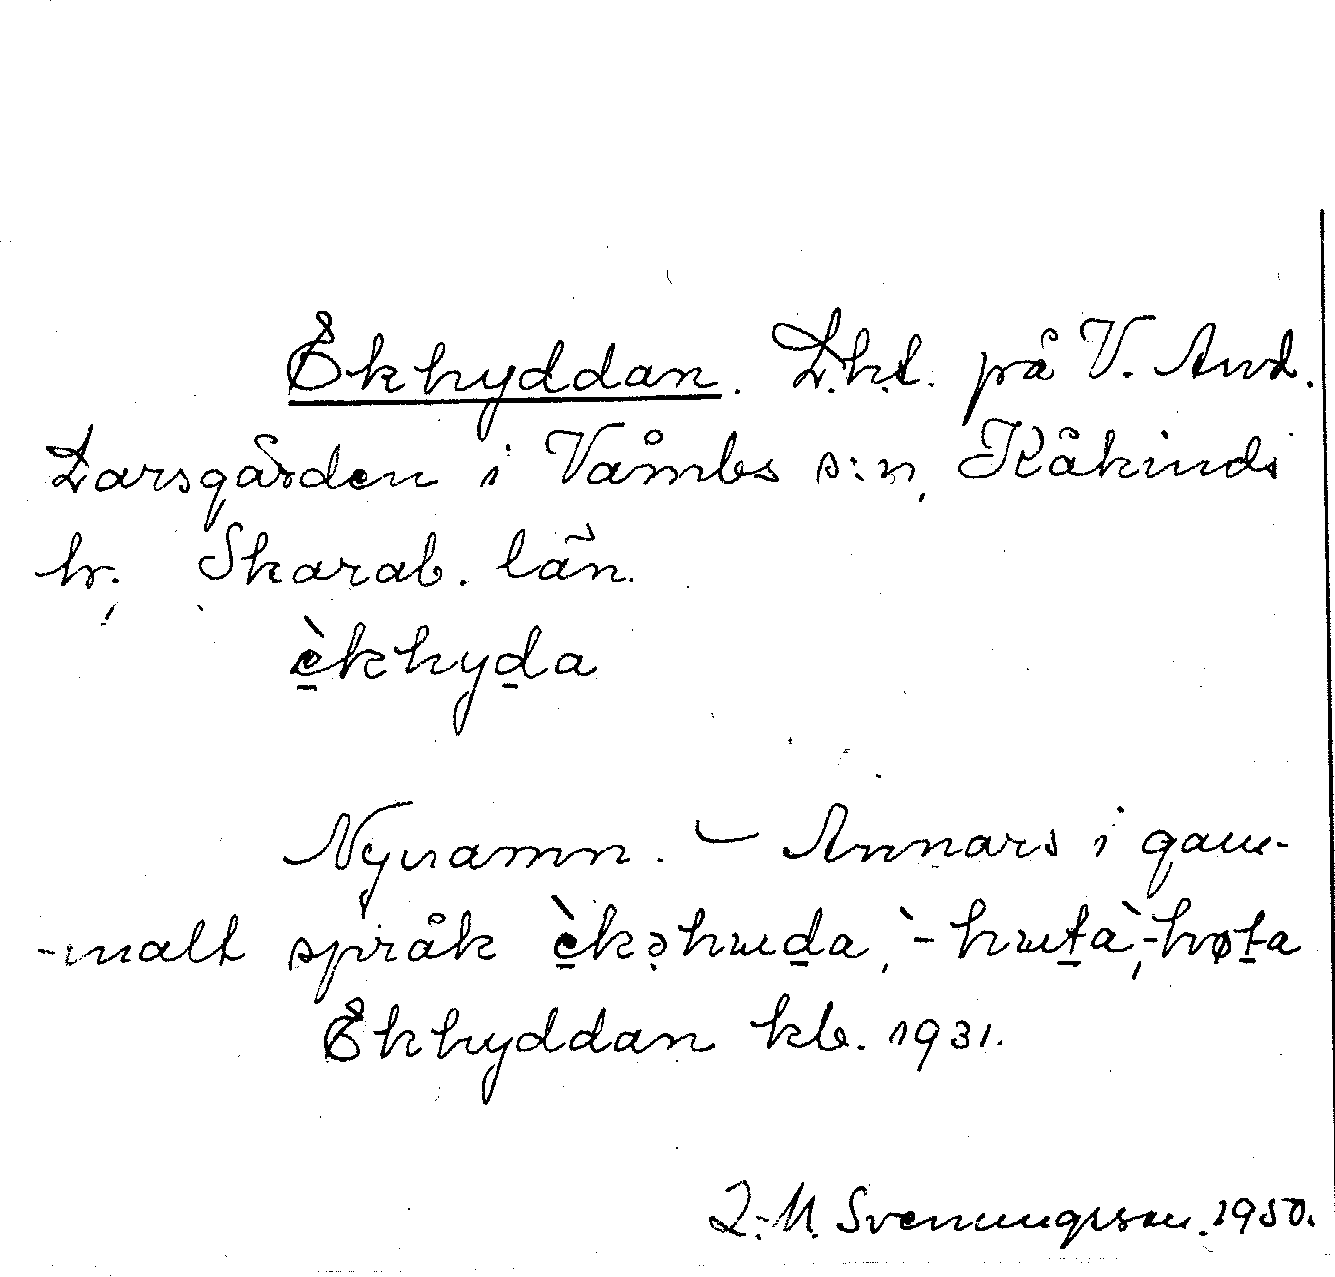 Ekhyddan. L.h.t. på V. And.
Larsgården i Våmbs s:n, Kåkinds
hr, Skarab. län.
èkhyda
Nynamn. – Annars i gam-
-malt språk èkəhuda, `-huta, `-høta
Ekhyddan kb. 1931.
L.-M. Svenungsson. 1950.